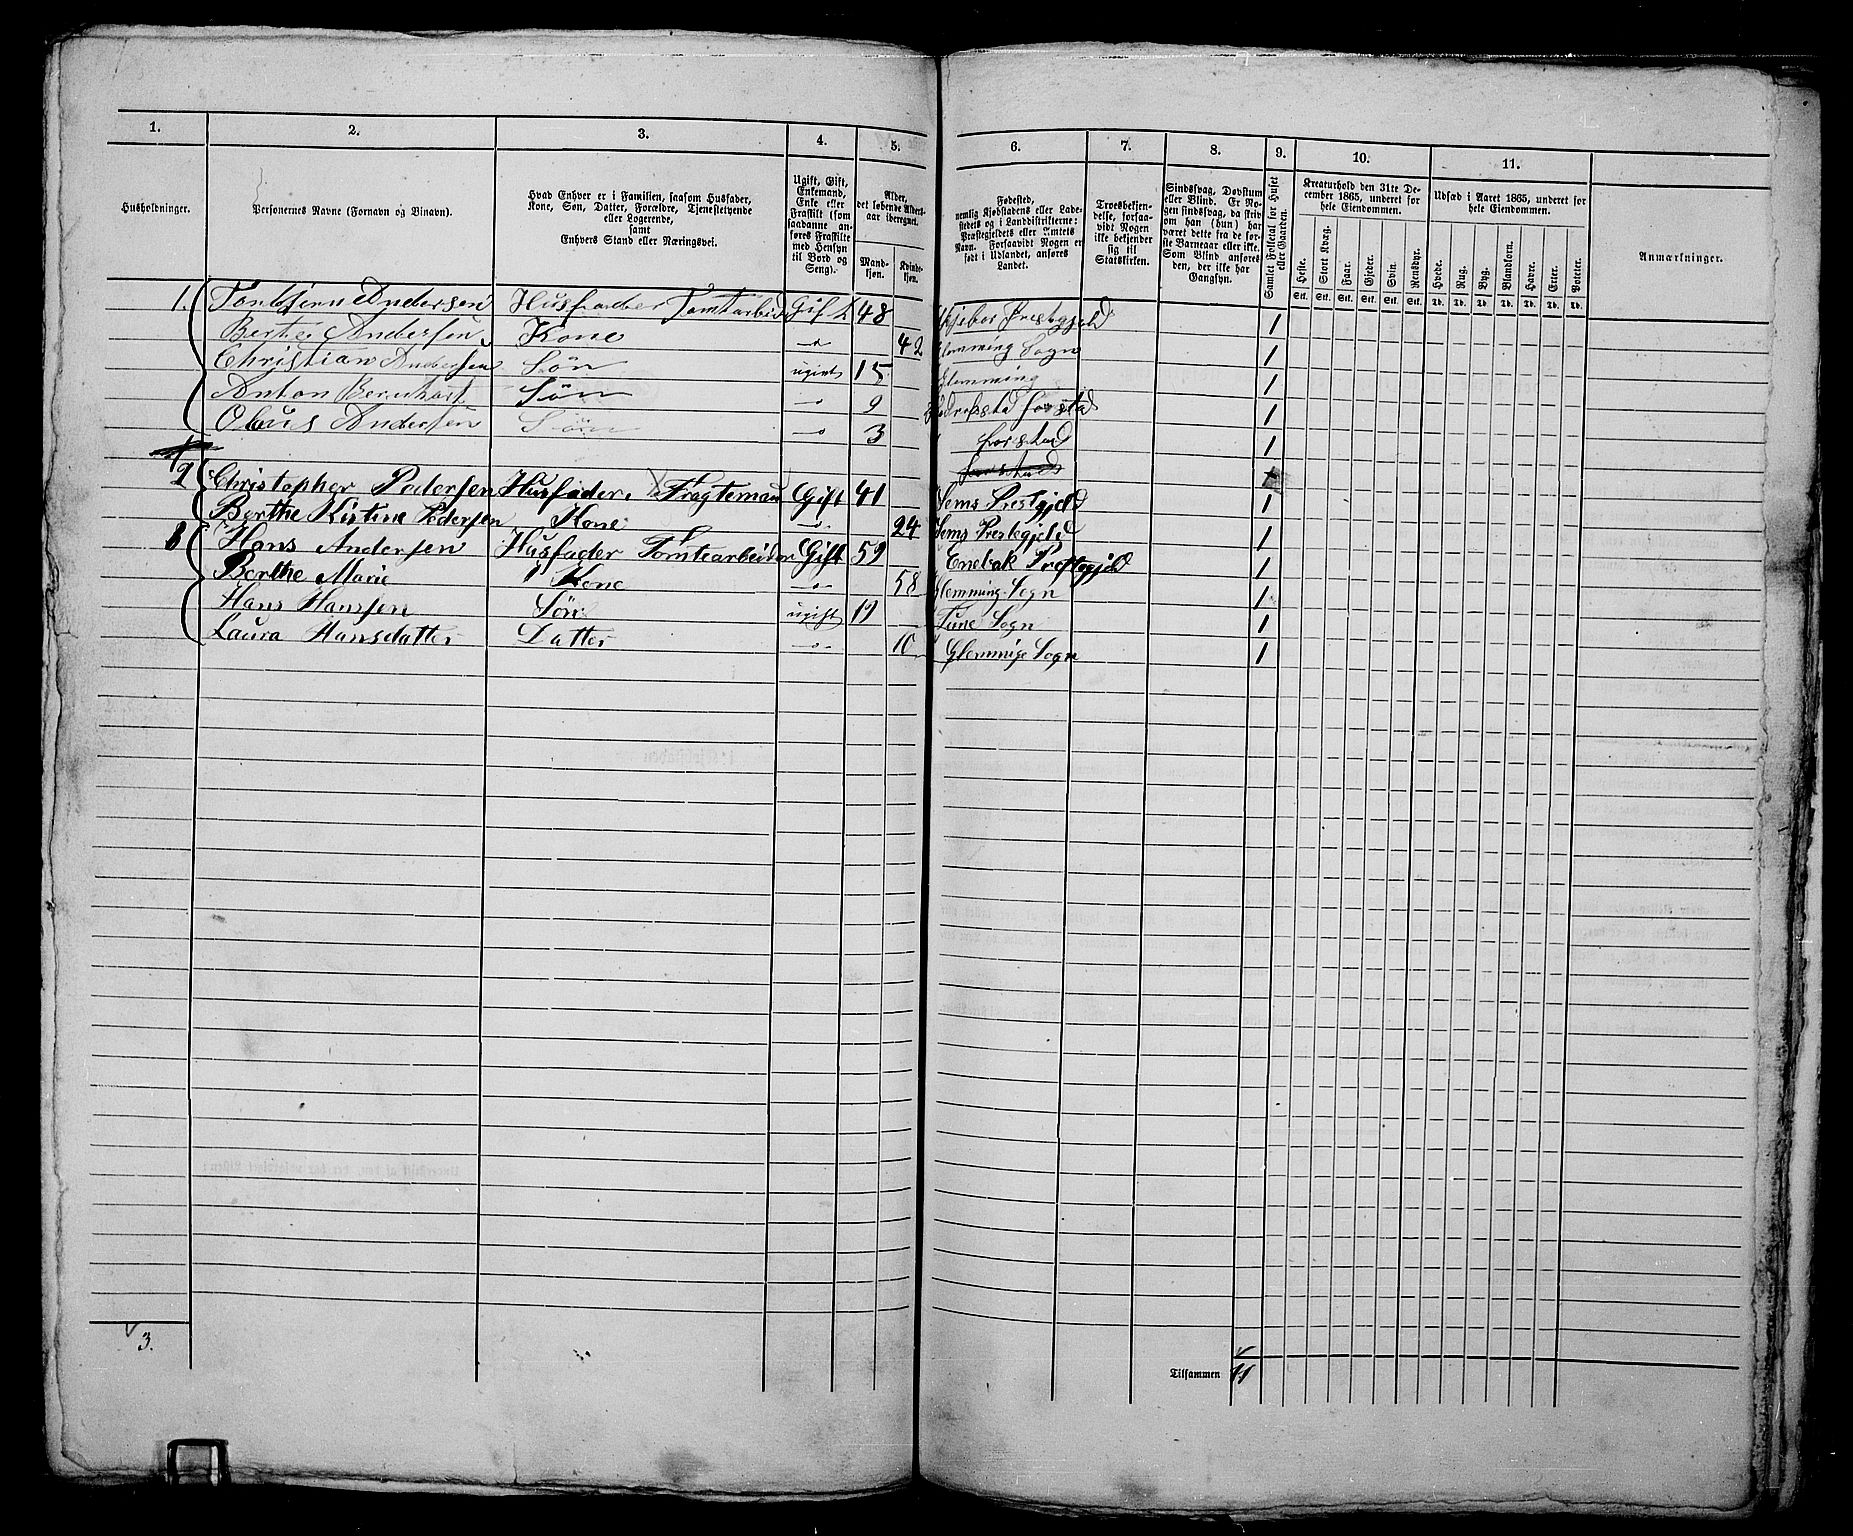 1. 2. 3. 4. 5. 6. 7. 8. 9. 10. 11.
Husholdninger.
Personernes Navne (Fornavn og Binavn).
Hvad Enhver er i Familien, saasom Husfader,
Kone, Søn, Datter, Forældre, Tjenestetyende
eller Logerende,
samt
Enhvers Stand eller Næringsvei.
Ugift, Gift,
Enkemand,
Enke eller
Fraskilt (som
saadanne an-
føres Fraskilte
med Hensyn
til Bord og
Seng).
Alder,
det løbende Alders-
aar iberegnet.
Mand-
kjøn.
Kvinde-
kjøn.
Fødested,
nemlig Kjøbstadens eller Lade-
stedets og i Landdistrikterne:
Præstegjeldets eller Amtets
Navn. Forsaavidt Nogen er
født i Udlandet, anføres
Landet.
Troesbekjen-
delse, forsaa-
vidt Nogen
ikke bekjender
sig til
Statskirken.
Sindssvag, Døvstum
eller Blind. Er No-
gen sindssvag, da skriv
om han (hun) har
været dette fra de før-
ste Barneaar eller ikke.
Som Blind anføres
den, der ikke har
Gangsyn.
Samlet Folketal for Huset
eller Gaarden.
Kreaturhold den 31te De-
cember 1865, underet for
hele Eiendommen.
Heste. Stort Kvæg. Faar. Gjeder. Svin. Rensdyr.
Stk. Stk. Stk. Stk. Stk. Stk.
Udsæd i Aaret 1865, underet for
hele Eiendommen.
Hvede. Rug. Byg. Blandkorn. Havre. Erter. Poteter.
Td. Td. Td. Td. Td. Td. Td.
Anmærkninger.
1. Torbjørn Andersen Husfader Tomtarbeid Gift 48 Prestgjeld 1
Berthe Andersen Kone " 42 Glemming Sogn 1
Christian Andersen Søn ugivt 15 Glemming 1
Anton Bernhart Søn " 9 Fredrikstad forstad 1
Olaus Andersen Søn " 3 forstad 1
forstad
2 Christopher Pedersen Husfader. Fragtemau Gift 41 Sems Prestgjeld 1
Berthe Kistine Pedersen Kone " 24 Sems Prestegjeld 1
3 Hans Andersen Husfader Tomtearbeider Gift 59 Enebak Prestegjeld 1
Berthe Marie Kone " 58 Glemming Sogn 1
Hans Hanssen Søn ugift 19 Tune Sogn 1
Laura Hansdatter Datter " 10 Glemmige Sogn 1
3.
Tilsammen 11